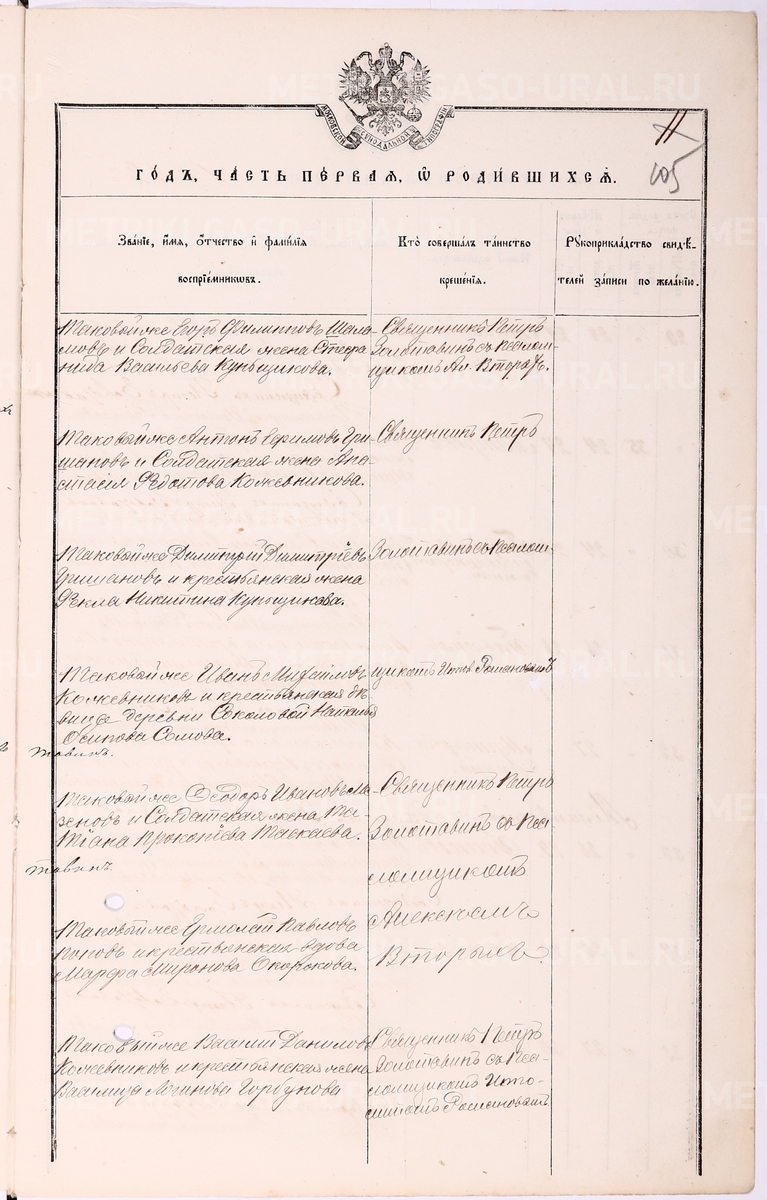 МОСКОВСКОЙ СѴНОДАЛЬНОЙ ТИПОГРАФІИ
11
105
ГО́ДЪ, ЧА́СТЬ ПЕ́РВАЯ, Ѿ РОДИ́ВШИХСѦ.
Зва́нїе, и҆́мѧ, ѻ҆́тчество и҆ фами́лїѧ
воспрїе́мникѡвъ.
Кто̀ соверша́лъ та́инство
креще́нїѧ.
Рꙋкоприкла́дство свидѣ́-
телей за́писи по жела́нїю.
Таковой же Егоръ Филипповъ Шала-
мовъ и Солдатская жена Стефа-
нида Васильева Куньщикова.
Священникъ Петръ
Золотавинъ съ Псалом-
щикомъ Ал. Вторыхъ.
Таковой же Антонъ Ефимовъ Гри-
шановъ и Солдатская жена Ана-
стасія Федотова Кожевникова.
Священникъ Петръ
Таковой же Димитрій Димитріевъ
Гришановъ и крестьянская жена
Фекла Никитина Куньщикова.
Золотавинъ съ Псалом-
Таковой же Иванъ Михаиловъ
Кожевниковъ и крестьянская дѣ-
вица деревни Соколовой Наталья
Осипова Сомова.
щикомъ Романовымъ
тавин.
Таковой же Ѳеодоръ Ивановъ Ма-
зеновъ и Солдатская жена Та-
тіана Прокопіева Таскаева.
Священникъ Петръ
Золотавинъ съ Пса-
ломщикомъ
Алексѣемъ
Вторыхъ
тавин.
Таковой же Ермолай Павловъ
Поповъ и крестьянская вдова
Марфа Миронова Окорокова.
Таковый же Василій Даниловъ
Кожевниковъ и крестьянская жена
Василиса Логинова Горбунова
Священникъ Петръ
Золотавинъ съ Пса-
ломщикомъ
Романовымъ
METRIKI.GASO-URAL.RU